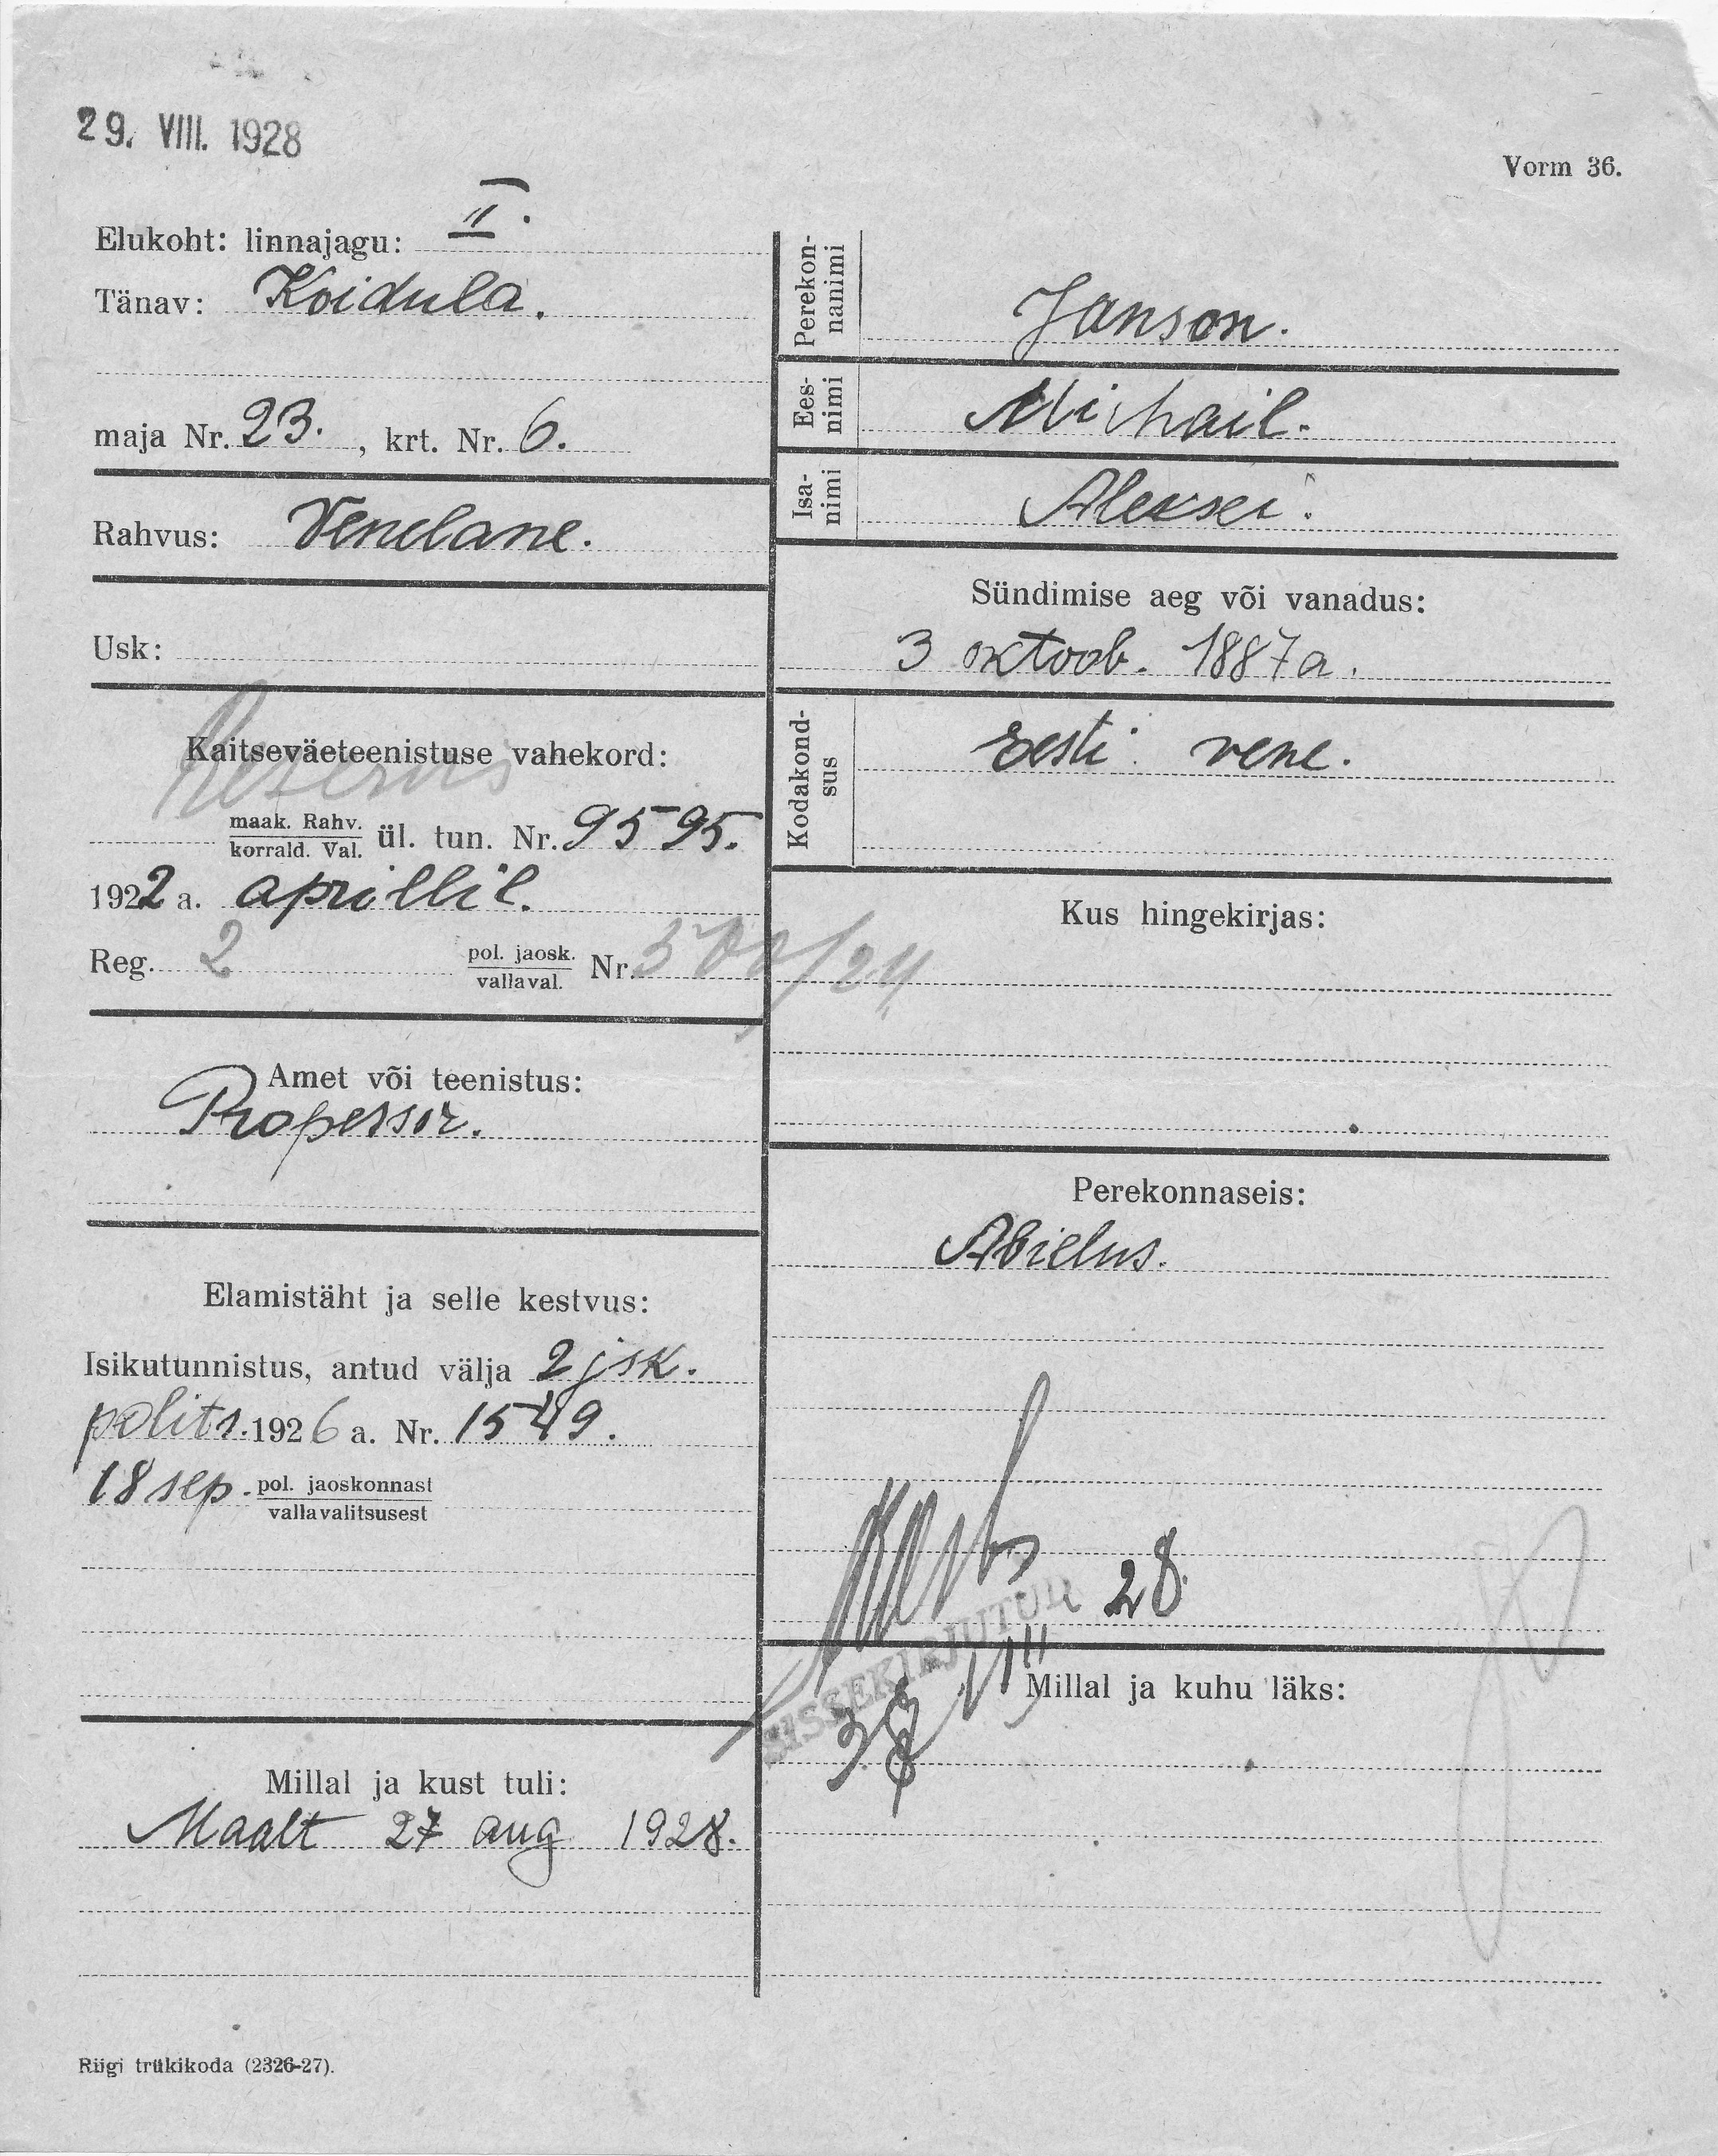 29. VIII. 1928
Vorm 36.
Elukoht: linnajagu: II.
Tänav: Koidula.
maja Nr. 23. , krt. Nr. 6.
Rahvus: Venelane.
Usk:
Kaitseväeteenistuse vahekord:
Reservis
maak. Rahv.
korrald. Val. ül. tun. Nr. 9595.
1922 a. aprillil.
Reg. 2 pol. jaosk.
vallaval. Nr. /24
Amet või teenistus:
Propessor.
Elamistäht ja selle kestvus:
Isikutunnistus, antud välja 2 jsk.
polits. 1926 a. Nr. 1549.
18 sep. pol. jaoskonnast
vallavalitsusest
Millal ja kust tuli:
Maalt 27 aug 1928.
Riigi trükikoda (2326-27).
Perekon-
nanimi
Janson.
Ees-
nimi
Michail.
Isa-
nimi
Aleksei.
Sündimise aeg või vanadus:
3 oktoob. 1887 a.
Kodakond-
sus
Eesti vene.
Kus hingekirjas:
Perekonnaseis:
Abielus.
SISSEKIRJUTUD
28.
VIII
Millal ja kuhu läks: